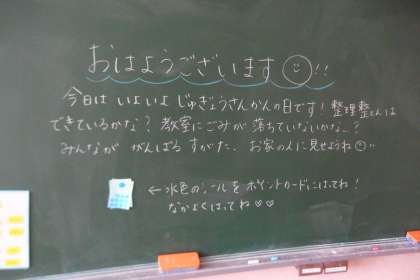 おはようございます!!
今日は いよいよ じゅぎょうさんかんの日です! 整理整とんは
できているかな? 教室にごみが落ちていないかな〜?
みんなが がんばる すがた、お家の人に見せようね
←水色のシールを ポイントカードにはってね!
なかよくはってね♡♡